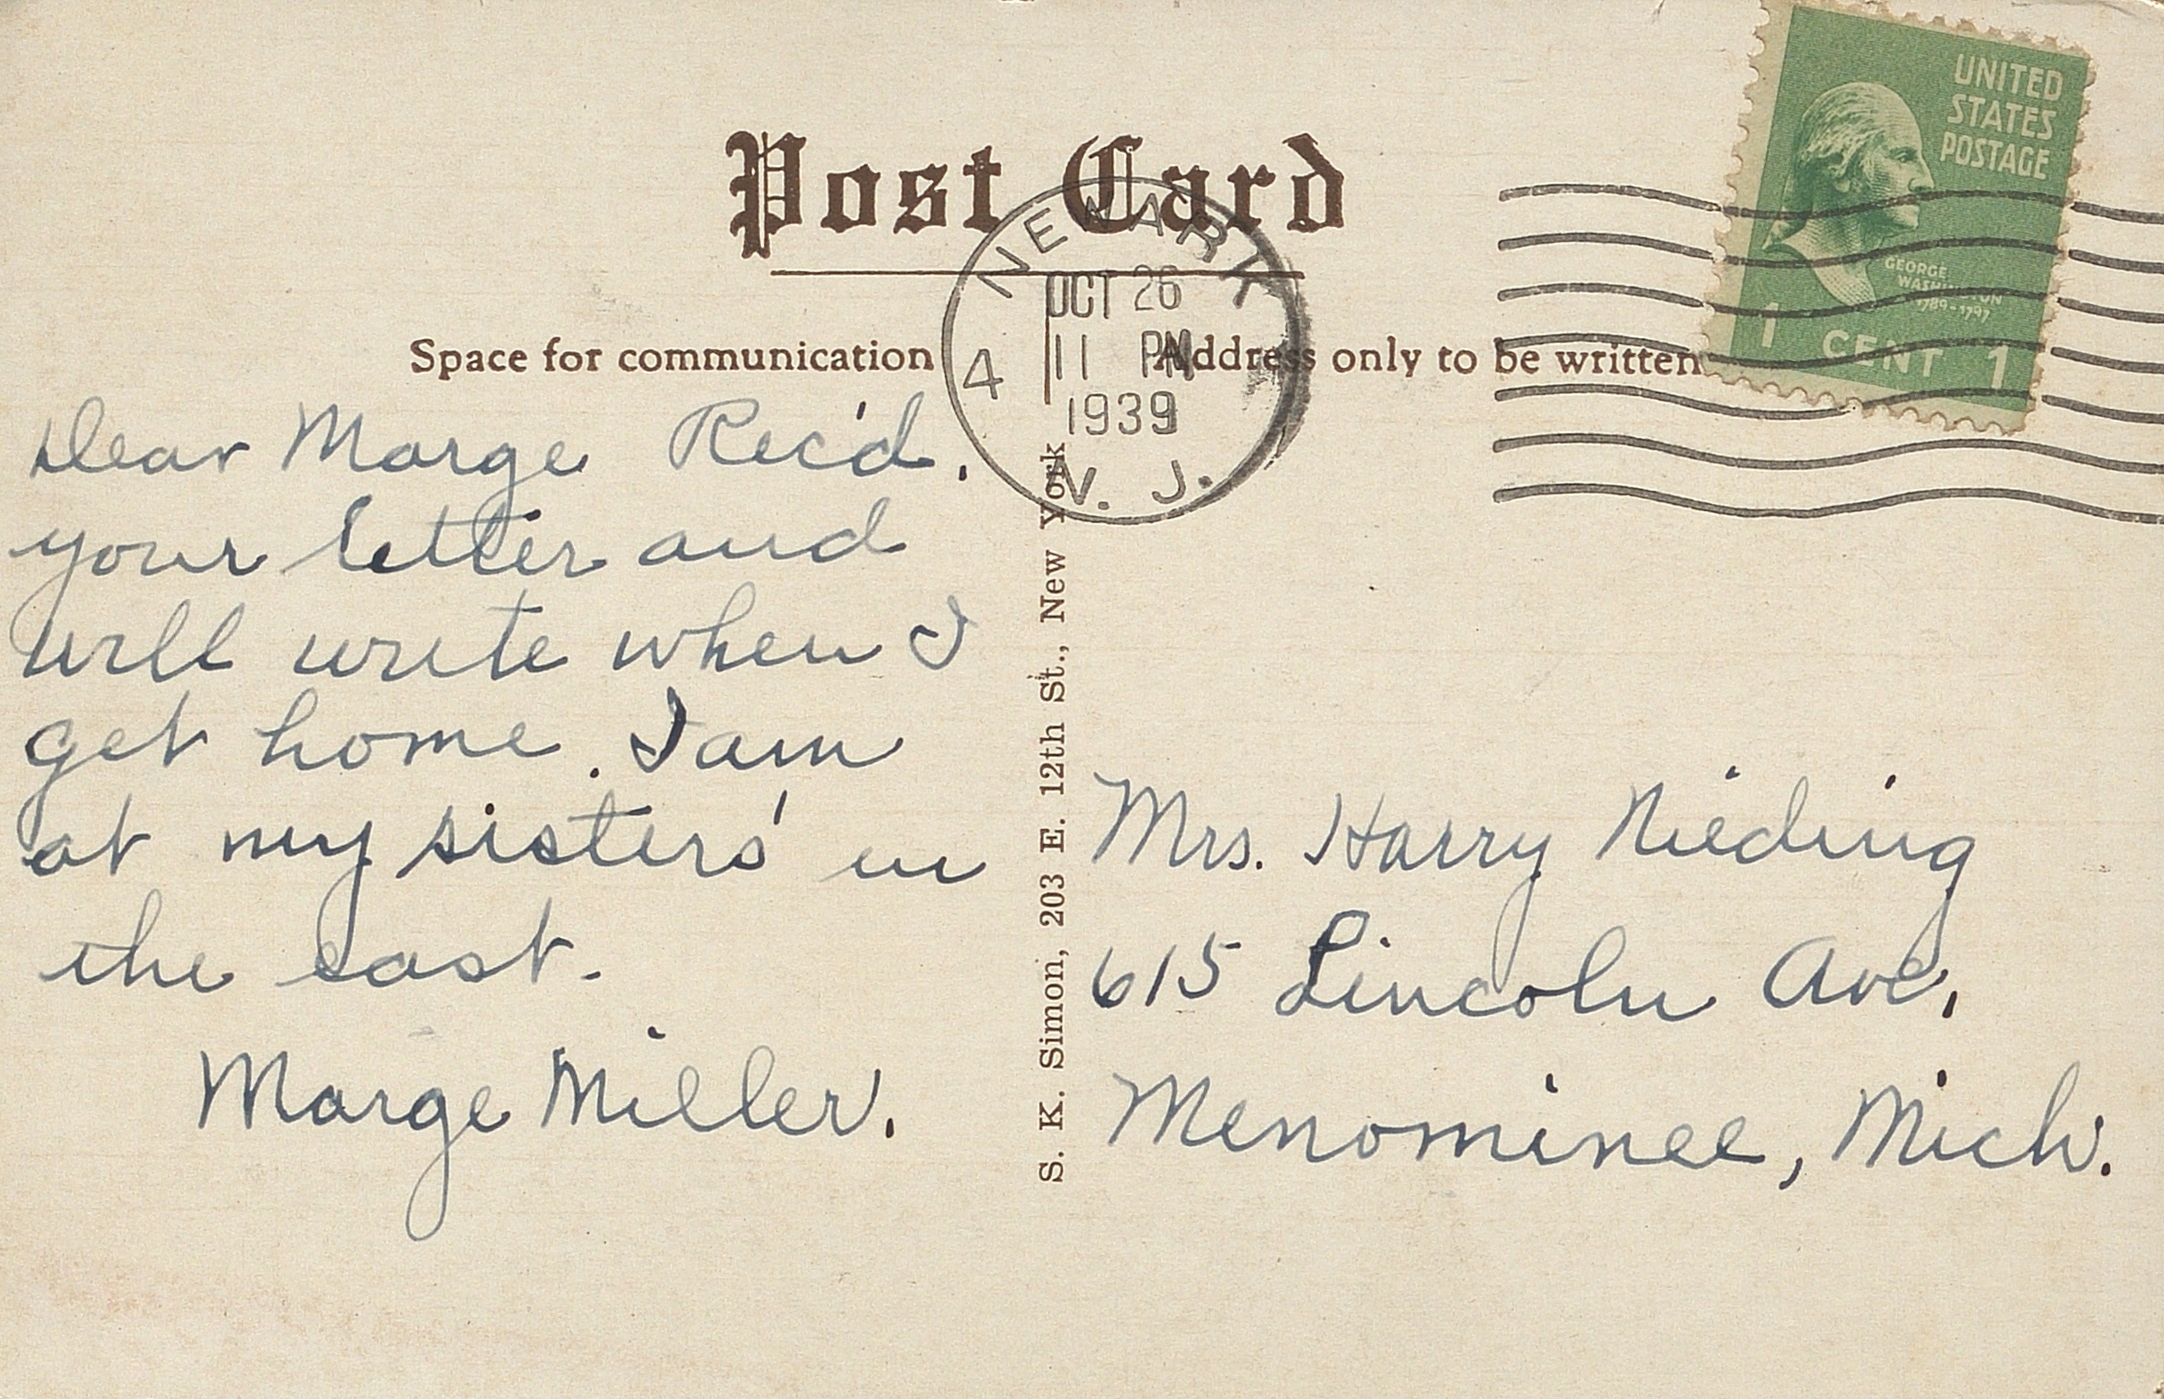 Post Card
UNITED
STATES
POSTAGE
GEORGE
WASHINGTON
1789-1797
1 CENT 1
NEWARK
OCT 26
4 11 PM
1939
N. J.
Space for communication
Address only to be written
Dear Marge Rec'd.
your letter and
will write when I
get home. I am
at my sisters' in
the east.
Marge Miller.
S. K. Simon, 203 E. 12th St., New York
Mrs. Harry Nieding
615 Lincoln Ave.
Menominee, Mich.